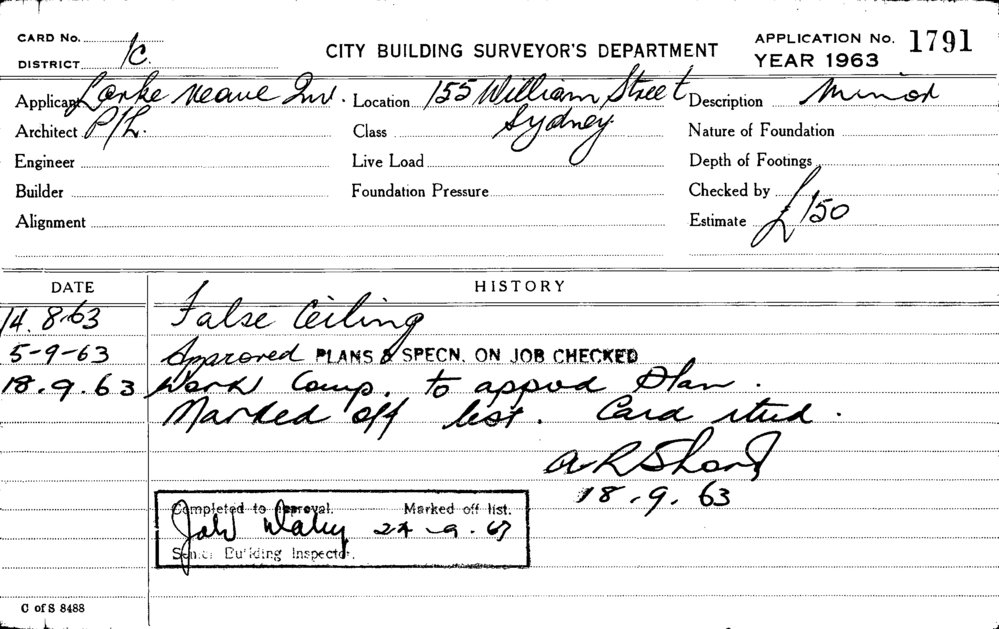 CARD No.
DISTRICT 1C.
CITY BUILDING SURVEYOR'S DEPARTMENT
APPLICATION No. 1791
YEAR 1963
Applicant Larke Neave Inv. Location 155 William Street Description Minor
Architect P/L. Class Sydney Nature of Foundation
Engineer Live Load Depth of Footings
Builder Foundation Pressure Checked by
Alignment Estimate £150
DATE HISTORY
14.8.63 False Ceiling
5-9-63 Approved PLANS & SPECN. ON JOB CHECKED
18.9.63 Work Comp. to appvd Plan.
Marked off list. Card
18.9.63
Completed to Approval. Marked off list.
24-9.63
Senior Building Inspector.
C of S 8488